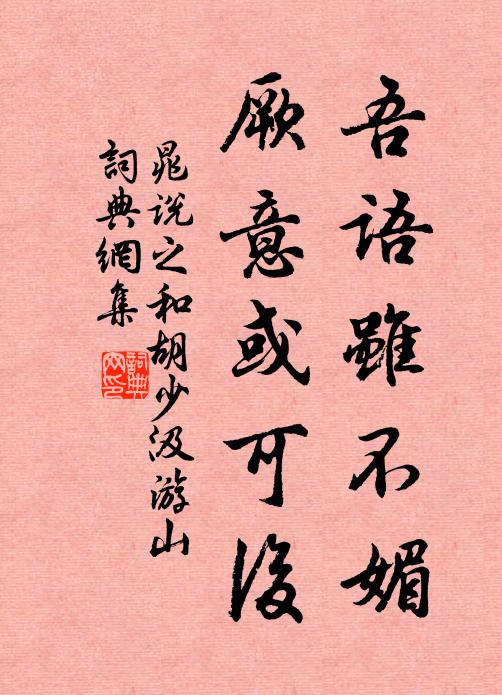 吾語雖不媚
厥意或可後
晁說之和胡少汲游山
詞典網集
詞典
网印